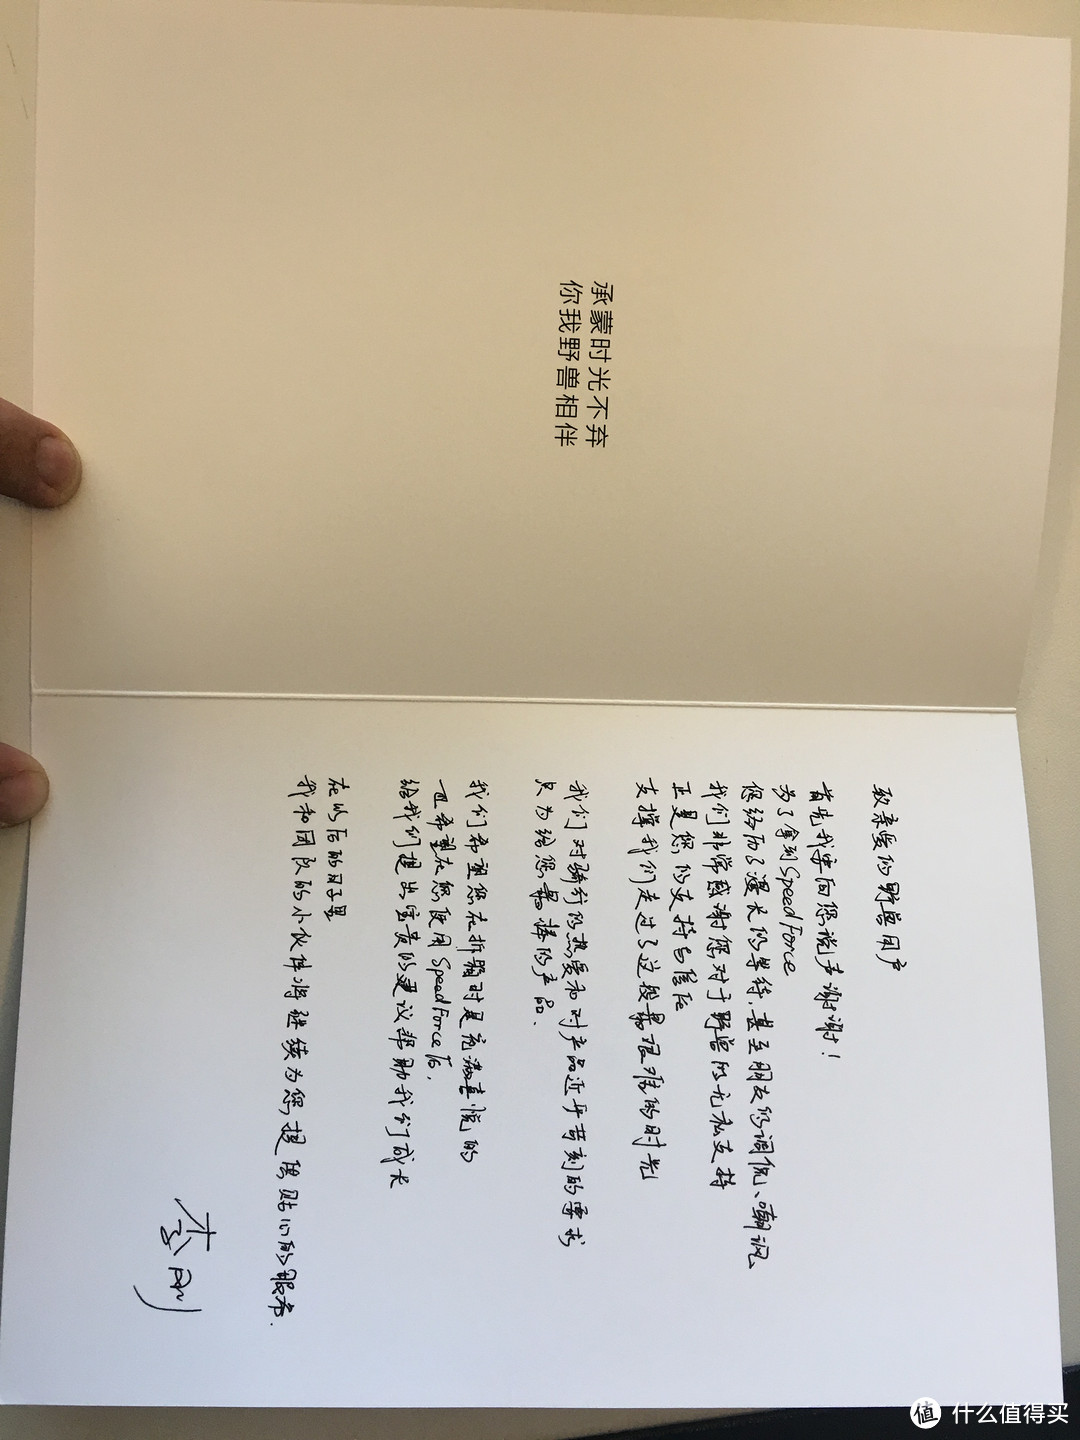 承蒙时光不弃
你我野兽相伴
致亲爱的野兽用户
首先我要向您说声谢谢！
为了拿到SpeedForce
您经历了漫长的等待，甚至朋友的调侃、嘲讽
我们非常感谢您对于野兽的无私支持
正是您的支持与信任
支撑我们走过了这段最艰难的时光
我们对骑行的热爱和对产品近乎苛刻的要求
只为给您最棒的产品.
我们希望您在拆箱时是充满喜悦的
也希望在您使用SpeedForce后，
给我们提出宝贵的建议帮助我们成长
在以后的日子里
我和团队的小伙伴将继续为您提供贴心的服务.
李刚
值 什么值得买